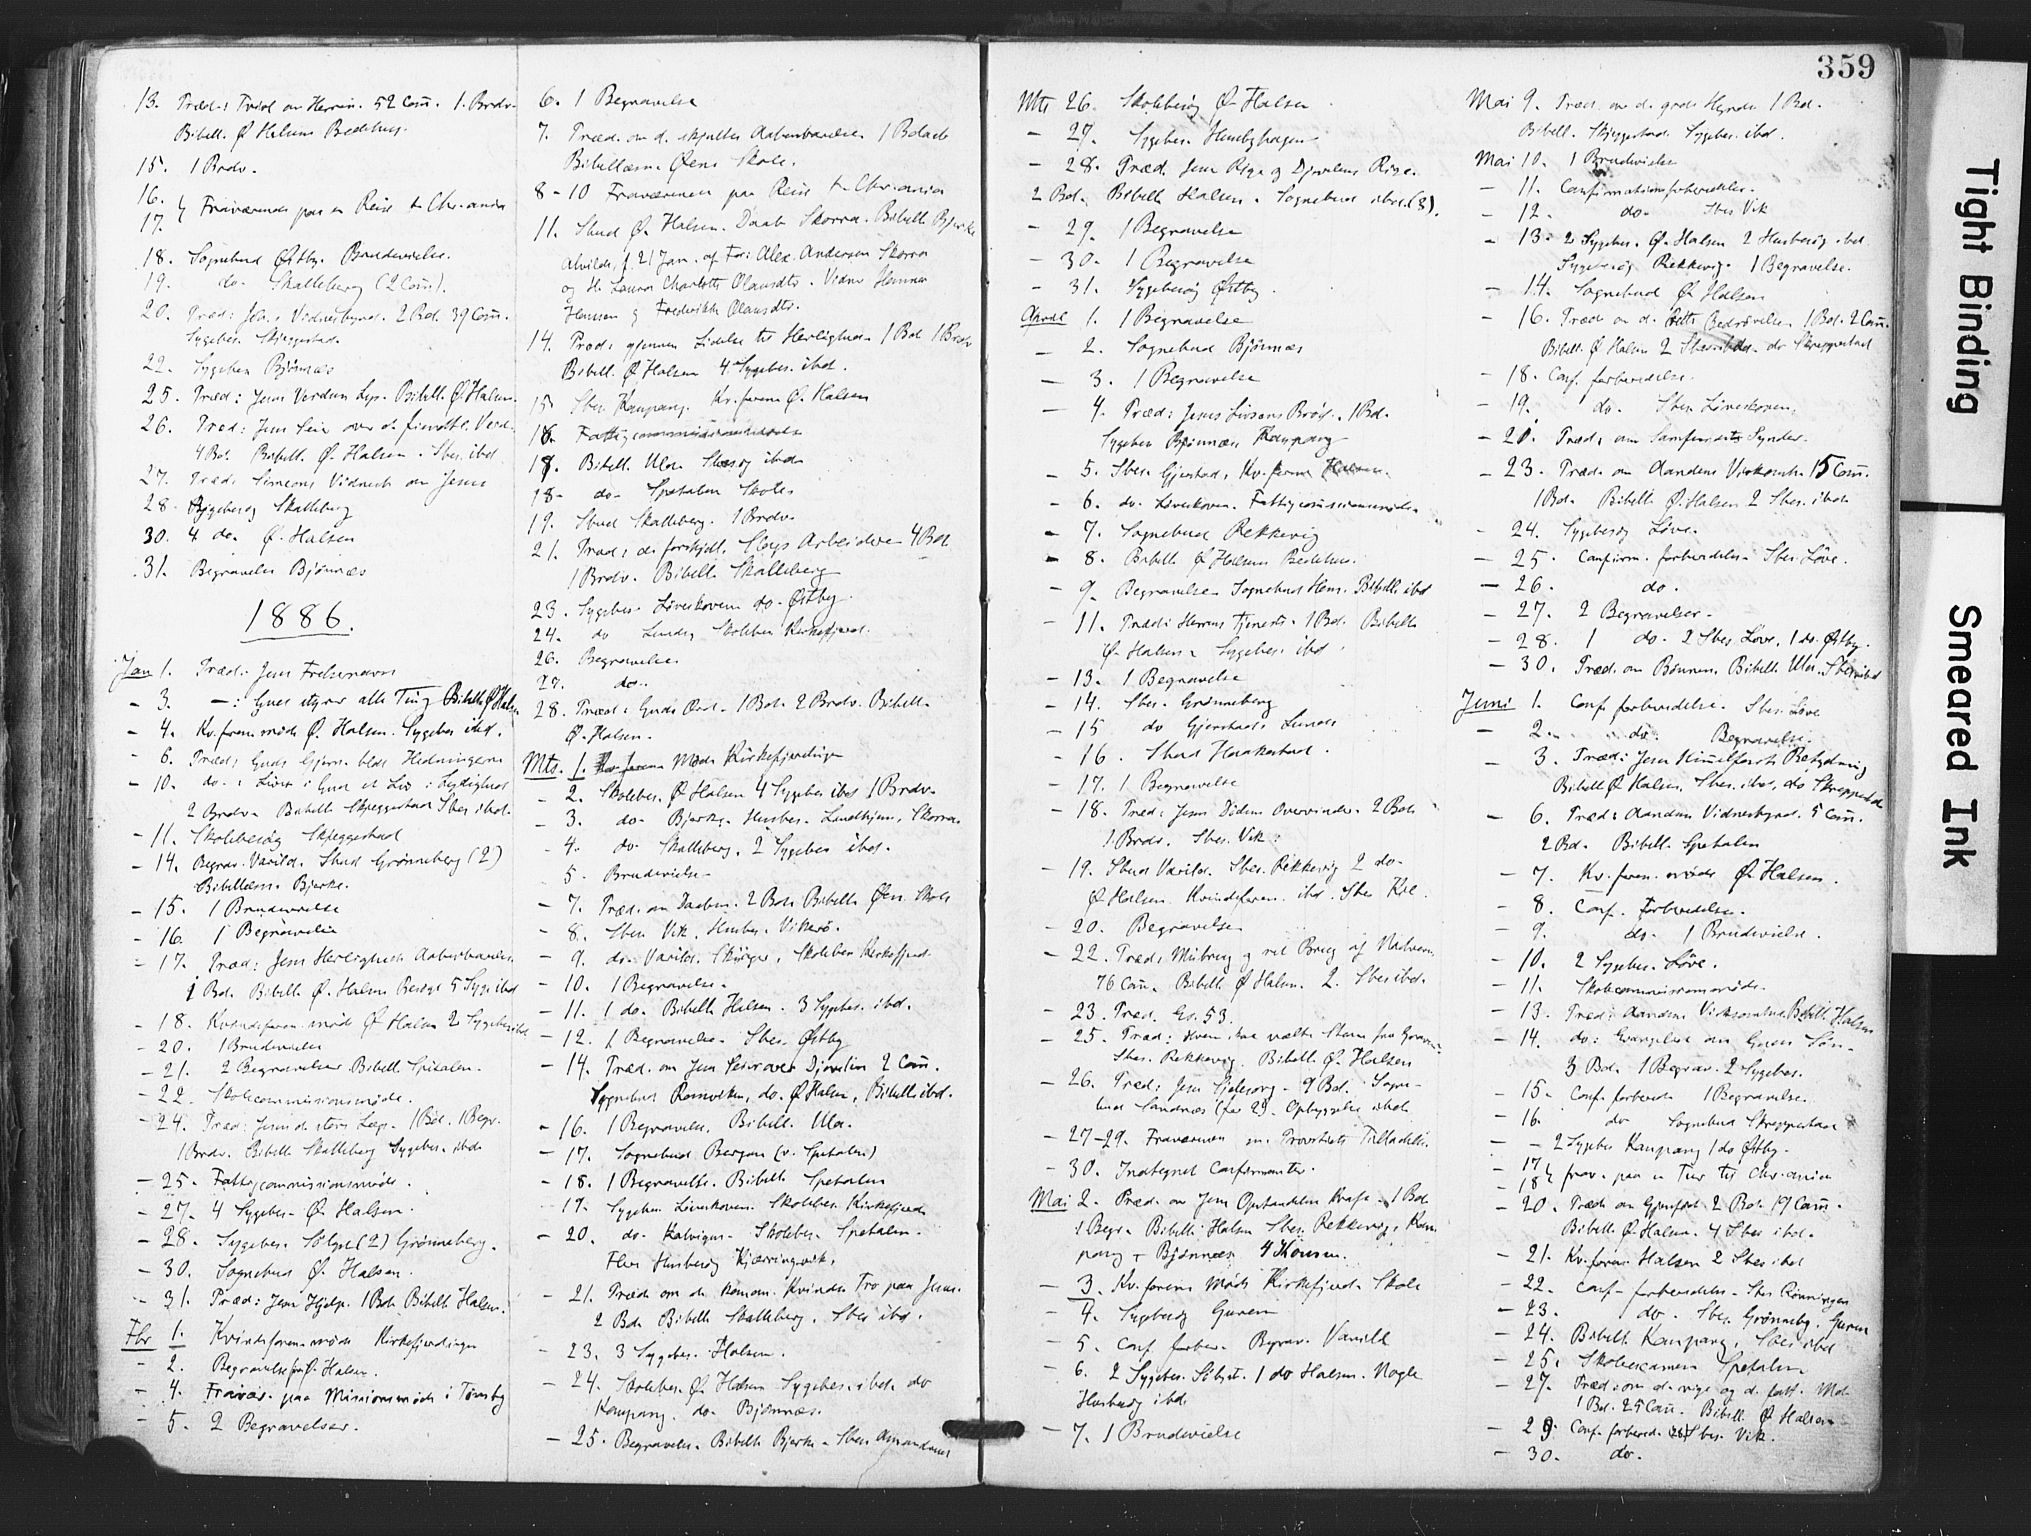 13. Præd: om Herren. 52 Com. 1. Brdv.
Bibell. Ø. Halsens Bedehus.
15. 1 Brdv.
16.
17. Fraværende paa en Reise t. Chr.ania
18. Sognebud Østby. Brudevielse.
19. do. Skalleberg (2 Com).
20. Præd: Joh.s Vidnesbyrd. 2 Bd. 39 Com.
Sygebes. Skjeggestad.
22. Sygebes Bjønnes
25. Præd: Jesus Verdens Lys. Bibell. Ø. Halsen.
26. Præd: Jesu Seier over d. fiendtl. Verd.
4 Bd. Bibell. Ø. Halsen. Sbes. ibd
27. Præd. Simeons Vidnesb. om Jesus
28. Sygebesøg Skalleberg
30. 4 do. Ø. Halsen
31. Begravelse Bjønnes
1886.
Jan 1. Præd: Jesu Frelsernavn
- 3. - : Gud styrer alle Ting Bibell. Ø. Halsen
- 4. Kv.foren.møde Ø. Halsen. Sygebes ibd.
- 6. Præd: Guds Gjern. bldt Hedningerne
- 10. do.: Livet i Gud et Liv i Lydighed
2 Brdv. Bibell. Skjeggestad Sbes ibd.
- 11. Skolebesøg Skjeggestad
- 14. Begrav. Varild. Sbud Grønneberg (2)
Bibellæsn. Bjerke.
- 15. 1 Brudevielse
- 16. 1 Begravelse
- 17. Præd: Jesu Herligheds Aabenbarelse
1 Bd. Bibell. Ø. Halsen Besøgt 5 Syge ibd
- 18. Kvindeforen.møde Ø. Halsen 2 Sygebes ibd
- 20. 1 Brudevielse
- 21. 2 Begravelser. Bibell. Spetalen.
- 22. Skolecommissionsmøde.
- 24. Præd: Jesus d. store Læge. 1 Bd. 1 Begr.
1 Brdv. Bibell. Skalleberg Sygebes. ibd
- 25. Fattigcommissionsmøde.
- 27. 4 Sygebes. Ø. Halsen.
- 28. Sygebes. (2) Grønneberg.
- 30. Sognebud Ø. Halsen.
- 31. Præd: Jesu Hjelp. 1 Bd. Bibell. Halsen.
Fbr 1. Kvindeforen.møde Kirkefjerdingen
- 2. Begravelse Halsen.
- 4. Fravær. paa Missionsmøde i Tønsbg
- 5. 2 Begravelser.
6. 1 Begravelse
7. Præd. om d. skjulte Aabenbarelse 1 Bd
Bibellæsn. Øens Skole.
8-10 Fraværende paa Reise t. Chr.ania
11. Sbud Ø. Halsen. Daab Skorra. Bibell. Bjerke
Alvilde, f. 21 Jan. af For: Alex. Andersen Skorra
og H. Laura Charlotte Olausdtr. Vidner
Hansen og Fredrikke Olausdtr.
14. Præd: gjennem Lidelse til Herlighed. 1 Bd 1 Brdv
Bibell. Ø. Halsen 4 Sygebes. ibd.
15 Sbes. Kaupang. Kv.foren. Ø. Halsen
16. Fattigcommissionsmøde
17. Bibell. Ula. Sbesøg ibd
18. do. Spetalen Skole
19. Sbud Skalleberg. 1 Brdv.
21. Præd: de forskjell. Slags Arbeidere 4 Bd
1 Brdv. Bibell. Skalleberg
23. Sygebes. Løveskoven do. Østby.
24. do Skolebes. Kirkefjerd.
26. Begravelse.
27. do.
28. Præd: Guds Ord. 1 Bd. 2 Brdv. Bibell.
Ø. Halsen.
Mts. 1. Kv. foren Møde Kirkefjerdingen
- 2. Skolebes. Ø. Halsen 4 Sygebes ibd 1 Brdv.
- 3. do. Bjerke. Husbes. Lindhjem, Skorra.
- 4. do Skalleberg. 2 Sygebes ibd.
- 5. Brudevielse
- 7. Præd. om Daaben. 2 Bd. Bibell. Øens Skole
- 8. Sbes. Vik. Husbes. Vikerø.
- 9. do. Varild. Skolebes. Kirkefjerd.
- 10. 1 Begravelse.
- 11. 1 do. Bibell. Halsen. 3 Sygebes. ibd.
- 12. 1 Begravelse. Sbes. Østby
- 14. Præd. om Jesu Seier over Djævelen 2 Com.
Sygebud do. Ø. Halsen, Bibell. ibd.
- 16. 1 Begravelse. Bibell. Ula.
- 17. Sognebud Bergan (v. Spetalen)
- 18. 1 Begravelse. Bibell. Spetalen
19. Sygebes Løveskoven. Skolebes. Kirkefjerd.
- 20. do. Kalvignes. Skolebes. Spetalen.
Flere Husbesøg Kjærringvik.
- 21. Præd. om de kanan. Kvindes Tro paa Jesu.
2 Bd. Bibell. Skalleberg. Sbes ibd.
- 23. 3 Sygebes. Halsen.
- 24. Skolebes. Ø. Halsen Sygebes. ibd. do
Kaupang. do. Bjønnes.
- 25. Begravelse. Bibell. Bjerke. Sbes. Amundrød
359
Mts 26. Skolebesøg Ø. Halsen
- 27. Sygebes. Humbyhagen
- 28. Præd. Jesu Rige og Djævelens Rige.
2 Bd. Bibell. Halsen. Sognebud ibd. (3).
- 29. 1 Begravelse
- 30. 1 Begravelse
- 31. Sygebesøg Østby.
April 1. 1 Begravelse
- 2. Sognebud Bjønnes
- 3. 1 Begravelse
- 4. Præd: Jesus Livsens Brød. 1 Bd.
Sygebes Bjønnes Kaupang
- 5. Sbes. Gjerstad, Kv.foren Halsen.
- 6. do. Løveskoven. Fattigcommissionsmøde.
- 7. Sognebud Rekkevig
- 8. Bibell. Ø. Halsens Bedehus.
- 9. Begravelse. Sognebud Hem. Bibell. ibd
- 11. Præd: Herrens Tjeneste. 1 Bd. Bibell.
Ø. Halsen. Sygebes. ibd.
- 13. 1 Begravelse
- 14. Sbes. Grønneberg
- 15 do Gjerstad. Lunde
- 16. Sbud Haakestad.
- 17. 1 Begravelse
- 18. Præd: Jesus Dødens Overvinder. 2 Bd.
1 Brdv. Sbes. Vik.
- 19. Sbud Varild. Sbes. Rekkevig 2 do.
Ø. Halsen. Kvindeforen. ibd. Sbes
- 20. Begravelse
- 22. Præd: Misbrug og ret Brug af Nadveren
76 Com. Bibell. Ø. Halsen. 2. Sbes ibd.
- 23. Præd. Es. 53.
- 25. Præd: Hvem skal vælte Stenen fra Graven
Sbes. Rekkevig. Bibell. Ø. Halsen
- 26. Præd: Jesu Sjælesorg. 9 Bd. Sogne-
bud Sandnæs (for 2). Opbyggelse ibd
- 27-29. Fraværende m. Provstiets Tilladelse.
- 30. Indtegnet Confirmanter.
Mai 2. Præd. om Jesu Opstandelses Kraft. 1 Bd
1 Begr. Bibell. Halsen Sbes. Rekkevig, Kau-
pang - Bjønnes
- 3. Kv.forens Møde Kirkefjerd. Skole
- 4. Sygebesøg Guren
- 5. Conf. forber. Begrav. Varild
- 6. 2 Sygebes. 1 do Halsen. Nogle
Husbesøg ibd.
- 7. 1 Brudevielse
Mai 9. Præd. om d. gode Hyrde 1 Bd.
Bibell. Skjeggestad. Sygebes. ibd.
Mai 10. 1 Brudevielse
- 11. Confirmationsforberedelse.
- 12. do. Sbes. Vik
- 13. 2 Sygebes. Ø. Halsen 2 Husbesøg ibd.
Sygebesøg Rekkevig. 1 Begravelse.
- 14. Sognebud Ø. Halsen
- 16. Præd om d. rette Bedrøvelse 1 Bd. 2 Com.
Bibell. Ø. Halsen 2 Sbes. ibd. do Skreppestad
- 18. Conf. forberedelse.
- 19. do. Sbes. Løveskoven.
- 21. Præd: om Samfundets Synder.
- 23. Præd. om Aandens Virksomh. 15 Com.
1 Bd. Bibell. Ø. Halsen 2 Sbes. ibd.
- 24. Sygebesøg Løve.
- 25. Confirm. forberedelse Sbes. Løve.
- 26. do.
- 27. 2 Begravelser.
- 28. 1 do. 2 Sbes. Løve. 1 do. Østby.
- 30. Præd. om Bønnen. Bibell. Ula. Sbes ibd
Juni 1. Conf. forberedelse. Sbes. Løve
- 2. do. Begravelse.
- 3. Præd: Jesu Himmelfarts Betydning
Bibell. Ø. Halsen, Sbes. ibd, do Skreppestad
- 6. Præd: Aandens Vidnesbyrd. 5 Com.
2 Bd. Bibell. Spetalen
- 7. Kv.foren.møde Ø. Halsen.
- 8. Conf. forberedelse.
- 9. do. 1 Brudevielse.
- 10. 2 Sygebes. Løve.
- 11. Skolecommissionsmøde.
- 13. Præd: Aandens Virksomhed. Bibell. Halsen
- 14. do: Evangeliet om Guds Søn.
3 Bd. 1 Begrav. 2 Sygebes.
- 15. Conf. forbered. 1 Begravelse.
- 16. do Sognebud Skreppestad
- - 2 Sygebes Kaupang 1 do Østby.
- 17
- 18 frav. paa en Tur til Chr.ania
- 20. Præd. om Gjenfød. 2 Bd. 19 Com.
Bibell. Ø. Halsen. 4 Sbes ibd.
- 21. Kv.foren. Halsen 2 Sbes ibd
- 22. Conf. forberedelse. Sbes Rønningen
- 23. do. Sbes. Grønneby. Guren
- 24. Bibell. Kaupang, Sbes ibd
- 25. Skoleexamen Spetalen
- 27. Præd: om d. rige og d. fatt. Md.
1 Bd. 25 Com. Bibell. Ø. Halsen
- 29. Conf. forbered. Sbes. Vik.
- 30. do.
Tight Binding
Smeared Ink